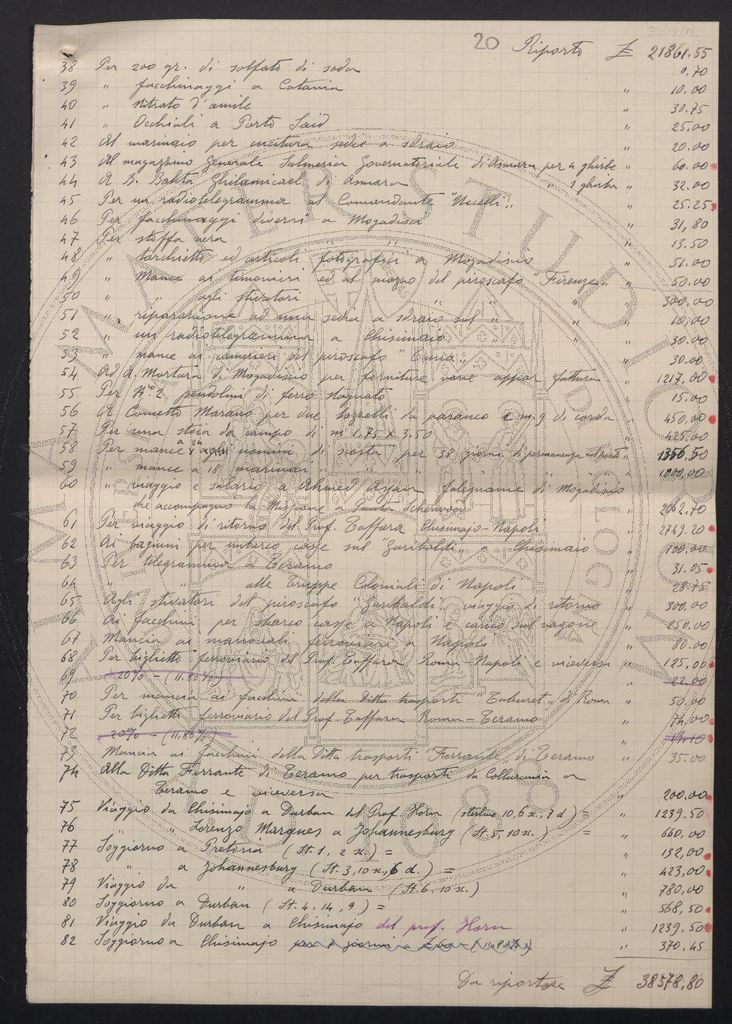 20 Riporto £ 21861.55
38 Per 200 gr. di solfato di soda 0.70
39 " facchinaggi a Catania " 10.00
40 " nitrato d'amile " 30.75
41 " Occhiali a Porto Said " 25.00
42 Al marinaio per cucitura sedie a sdraio " 20.00
43 Al magazzino Generale Salmeria Governatoriale di Asmara per 4 ghirbe " 60.00
44 A B. Bakta Ghilamicael di Asmara " 2 ghirba " 32.00
45 Per un radiotelegramma al Comandante " 25.25
46 Per facchinaggi diversi a Mogadiscio " 31,80
47 Per stoffa nera " 13.50
48 " ed articoli fotografici a Mogadiscio " 51.00
49 " Mance ai timonieri ed al mozzo del piroscafo "Firenze" " 50.00
50 " " agli stivatori " " " 300,00
51 " riparazione ad una sedia a sdraio sul " " 10,00
52 " un radiotelegramma a Chisimaio " 30.00
53 " mance ai camerieri del piroscafo " 30.00
54 Ad A. Mortara di Mogadiscio per forniture varie appar fattura 1217,00
55 Per N.° 2 pendolini di ferro " 15.00
56 A Concetto Marano per due bozzelli da paranco e m. 9 di corda " 450.00
57 Per una stoia da campo di m 1.75 x 3,50 " 425.00
58 Per mance a 24 uomini di scorta per 38 giorni di permanenza " 1356,50
59 " mance a 18 marinai " " " " 1000,00
60 " viaggio e salario a Ahmed falegname di Mogadiscio
che accompagnò la Missione a " 2062.70
61 Per viaggio di ritorno del Prof. Taffara Chisimajo-Napoli " 2749.20
62 Ai bagnini per imbarco casse sul "Garibaldi" a Chisimaio " 100,00
63 Per telegramma a Teramo " 31.05
64 " " alle Truppe Coloniali di Napoli " 28.75
65 Agli stivatori del piroscafo "Garibaldi" viaggio di ritorno " 300.00
66 Ai facchini per sbarco casse a Napoli e carico sul vagone " 250.00
67 Mancia ai manovali ferroviari a Napoli " 80.00
68 Per biglietto ferroviario del Prof. Taffara Roma-Napoli e viceversa " 125,00
69 20% - (11.80%) " 22.00
70 Per mancia ai facchini della Ditta trasporti "Taburet" di Roma " 50.00
71 Per biglietti ferroviario del Prof. Taffara Roma-Teramo " 74,00
72 20% - (11,86%) "
73 Mancia ai facchini della Ditta trasporti "Ferrante" di Teramo " 35.00
74 Alla Ditta Ferrante di Teramo per trasporti da Collurania a
Teramo e viceversa " 200.00
75 Viaggio da Chisimajo a Durban del Prof. Horn (sterline 10, 6 s., 7 d) = " 1239.50
76 " " Lorenzo Marques a Johannesburg (St. 5, 10 s.) = " 660.00
77 Soggiorno a Pretoria (St. 1, 2 s.) = " 132,00
78 " a Johannesburg (St. 3, 10 s., 6 d.) = " 423,00
79 Viaggio da " a Durban (St. 6. 10 s.) " 780,00
80 Soggiorno a Durban (St. 4, 14, 9) = " 568,50
81 Viaggio da Durban a Chisimajo del prof. Horn " 1239.50
82 Soggiorno a Chisimajo " 370.45
Da riportare £ 38578,80